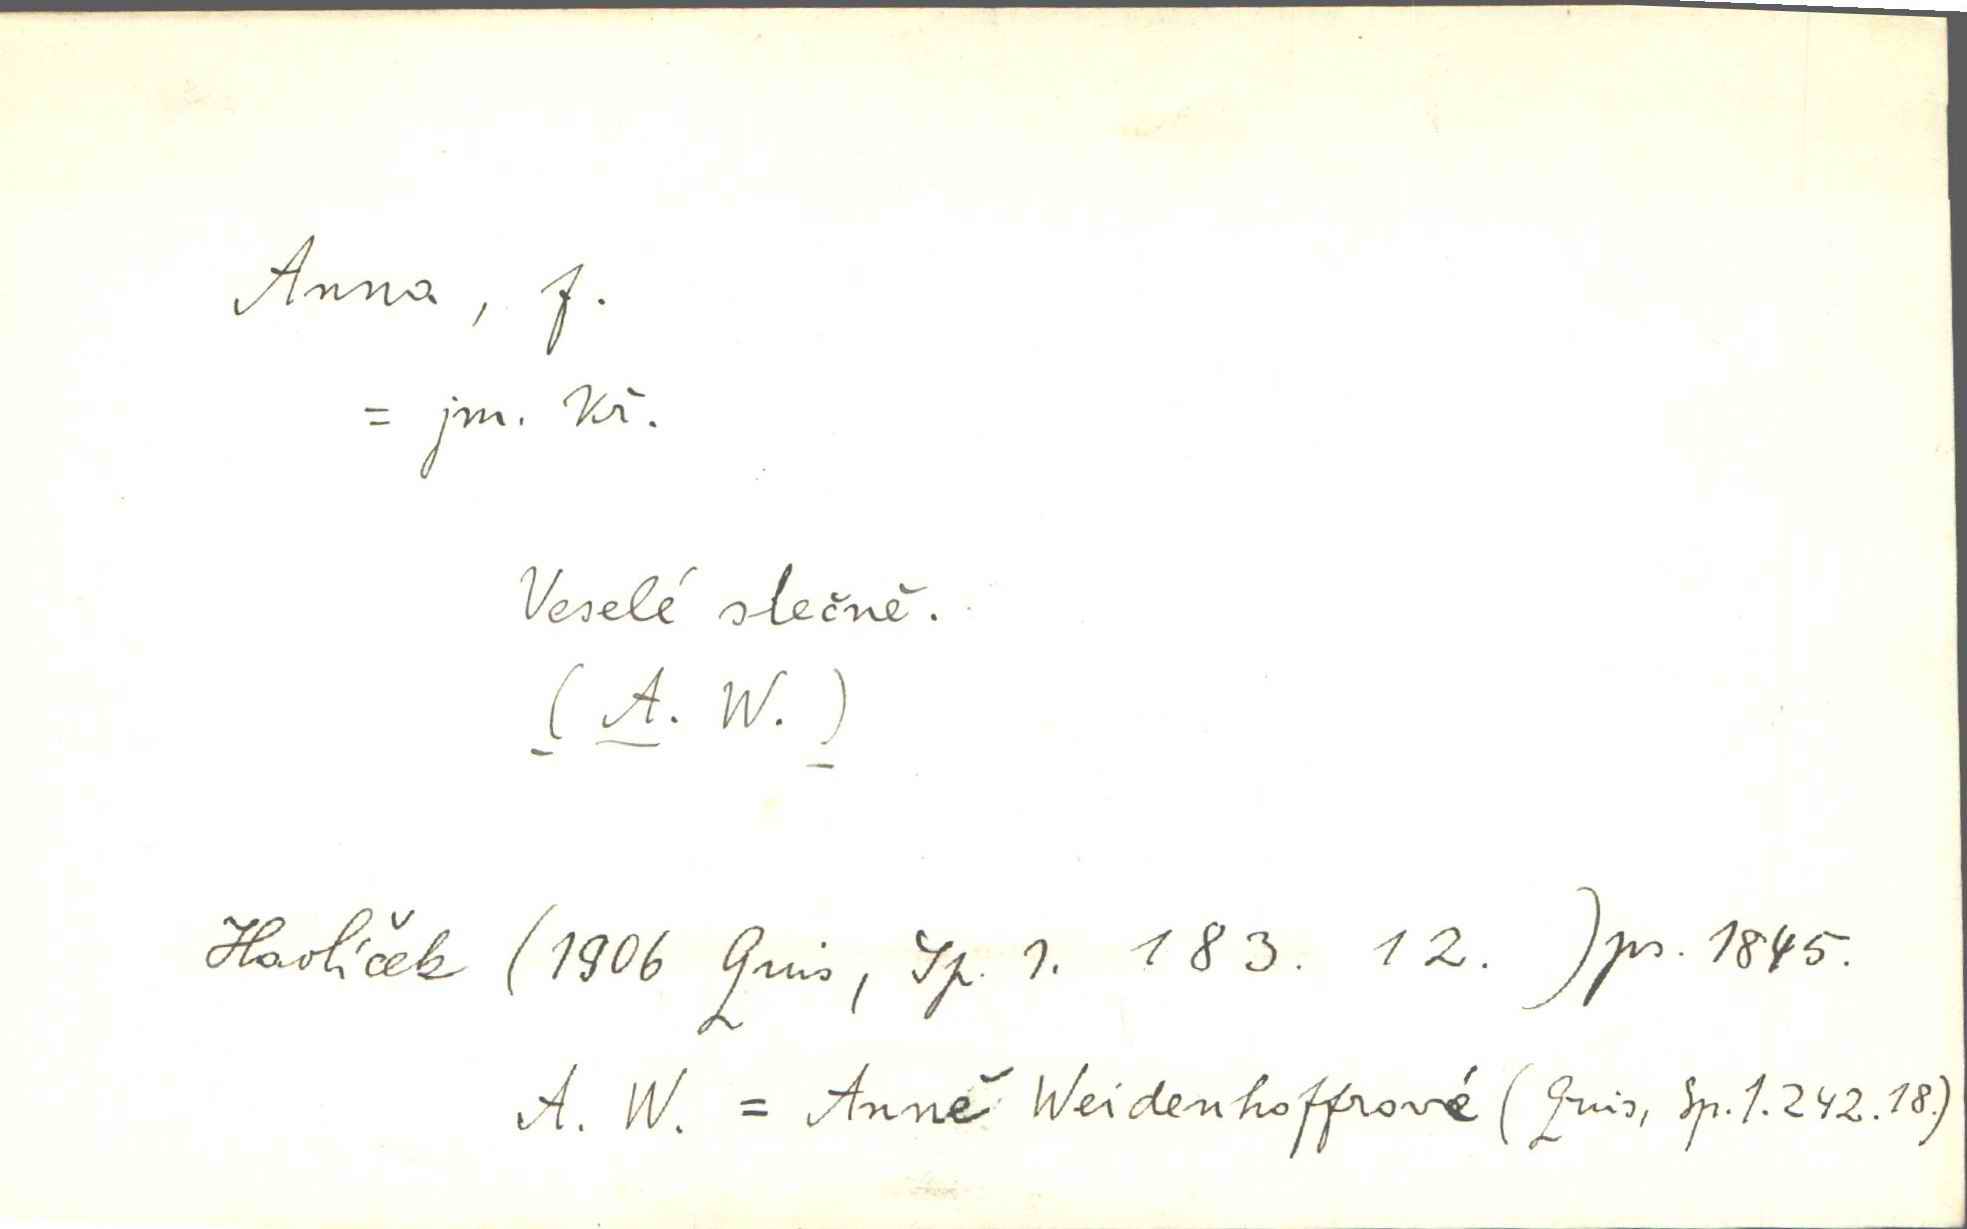 Anna, f.
= jm. kř.
Veselé slečně.
(A. W.)
Havlíček (1906 Quis, Sp. 1. 183. 12. ) ps. 1845.
A. W. = Anně Weidenhoffrové (Quis, Sp. 1. 242. 18.)